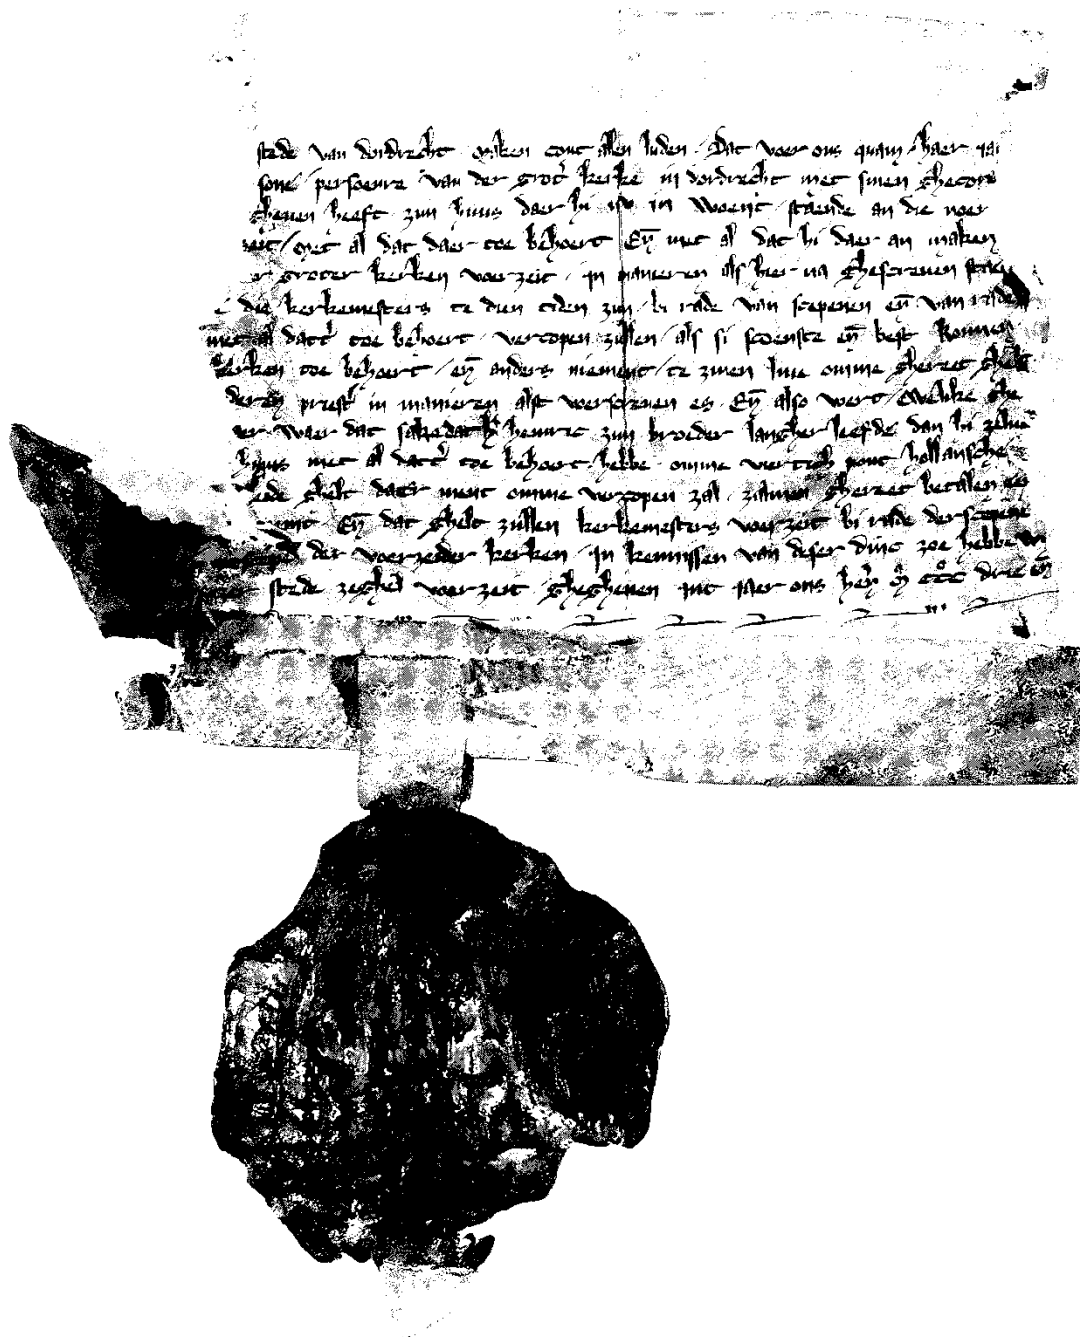 stede van dordrecht maken cont allen luden Dat voer ons quam haer jan
sone persoenre van der grot' kerke in dordrecht met sinen ghecore
ghenen heeft zijn huus daer hi nv in woent staende an die voer
met al dat daer toe behoert En̄ met al dat hi daer an maken
groter kerken voerzeit in manieren als hier na ghescreuen staen
die kerkemesters te dien tiden zijn bi rade van scepenen en̄ van rade
met al datt' toe behoert vercopen zullen als si scoenste en̄ best konnen
kerken toe behoert en̄ anders niement te zinen liue omme ghereet ghelt
priest' in manieren alst voerscreuen es En̄ also wert
waer dat sake dat h' heinric zijn broeder langher leefde dan hi zelue
huus met al datt' toe behoert hebbe omme viertich pont hollansche
ghelt datt' ment omme vercopen zal zalmen ghereet betalen
En̄ dat ghelt zullen kerkemesters voerzeit bi rade der scepene
der voerzeider kerken In kennissen van deser dinc zoe hebbe wi
stede zeghel voerzeit Ghegheuen int jaer ons her̄ m̊ ccc̊ drie en̄